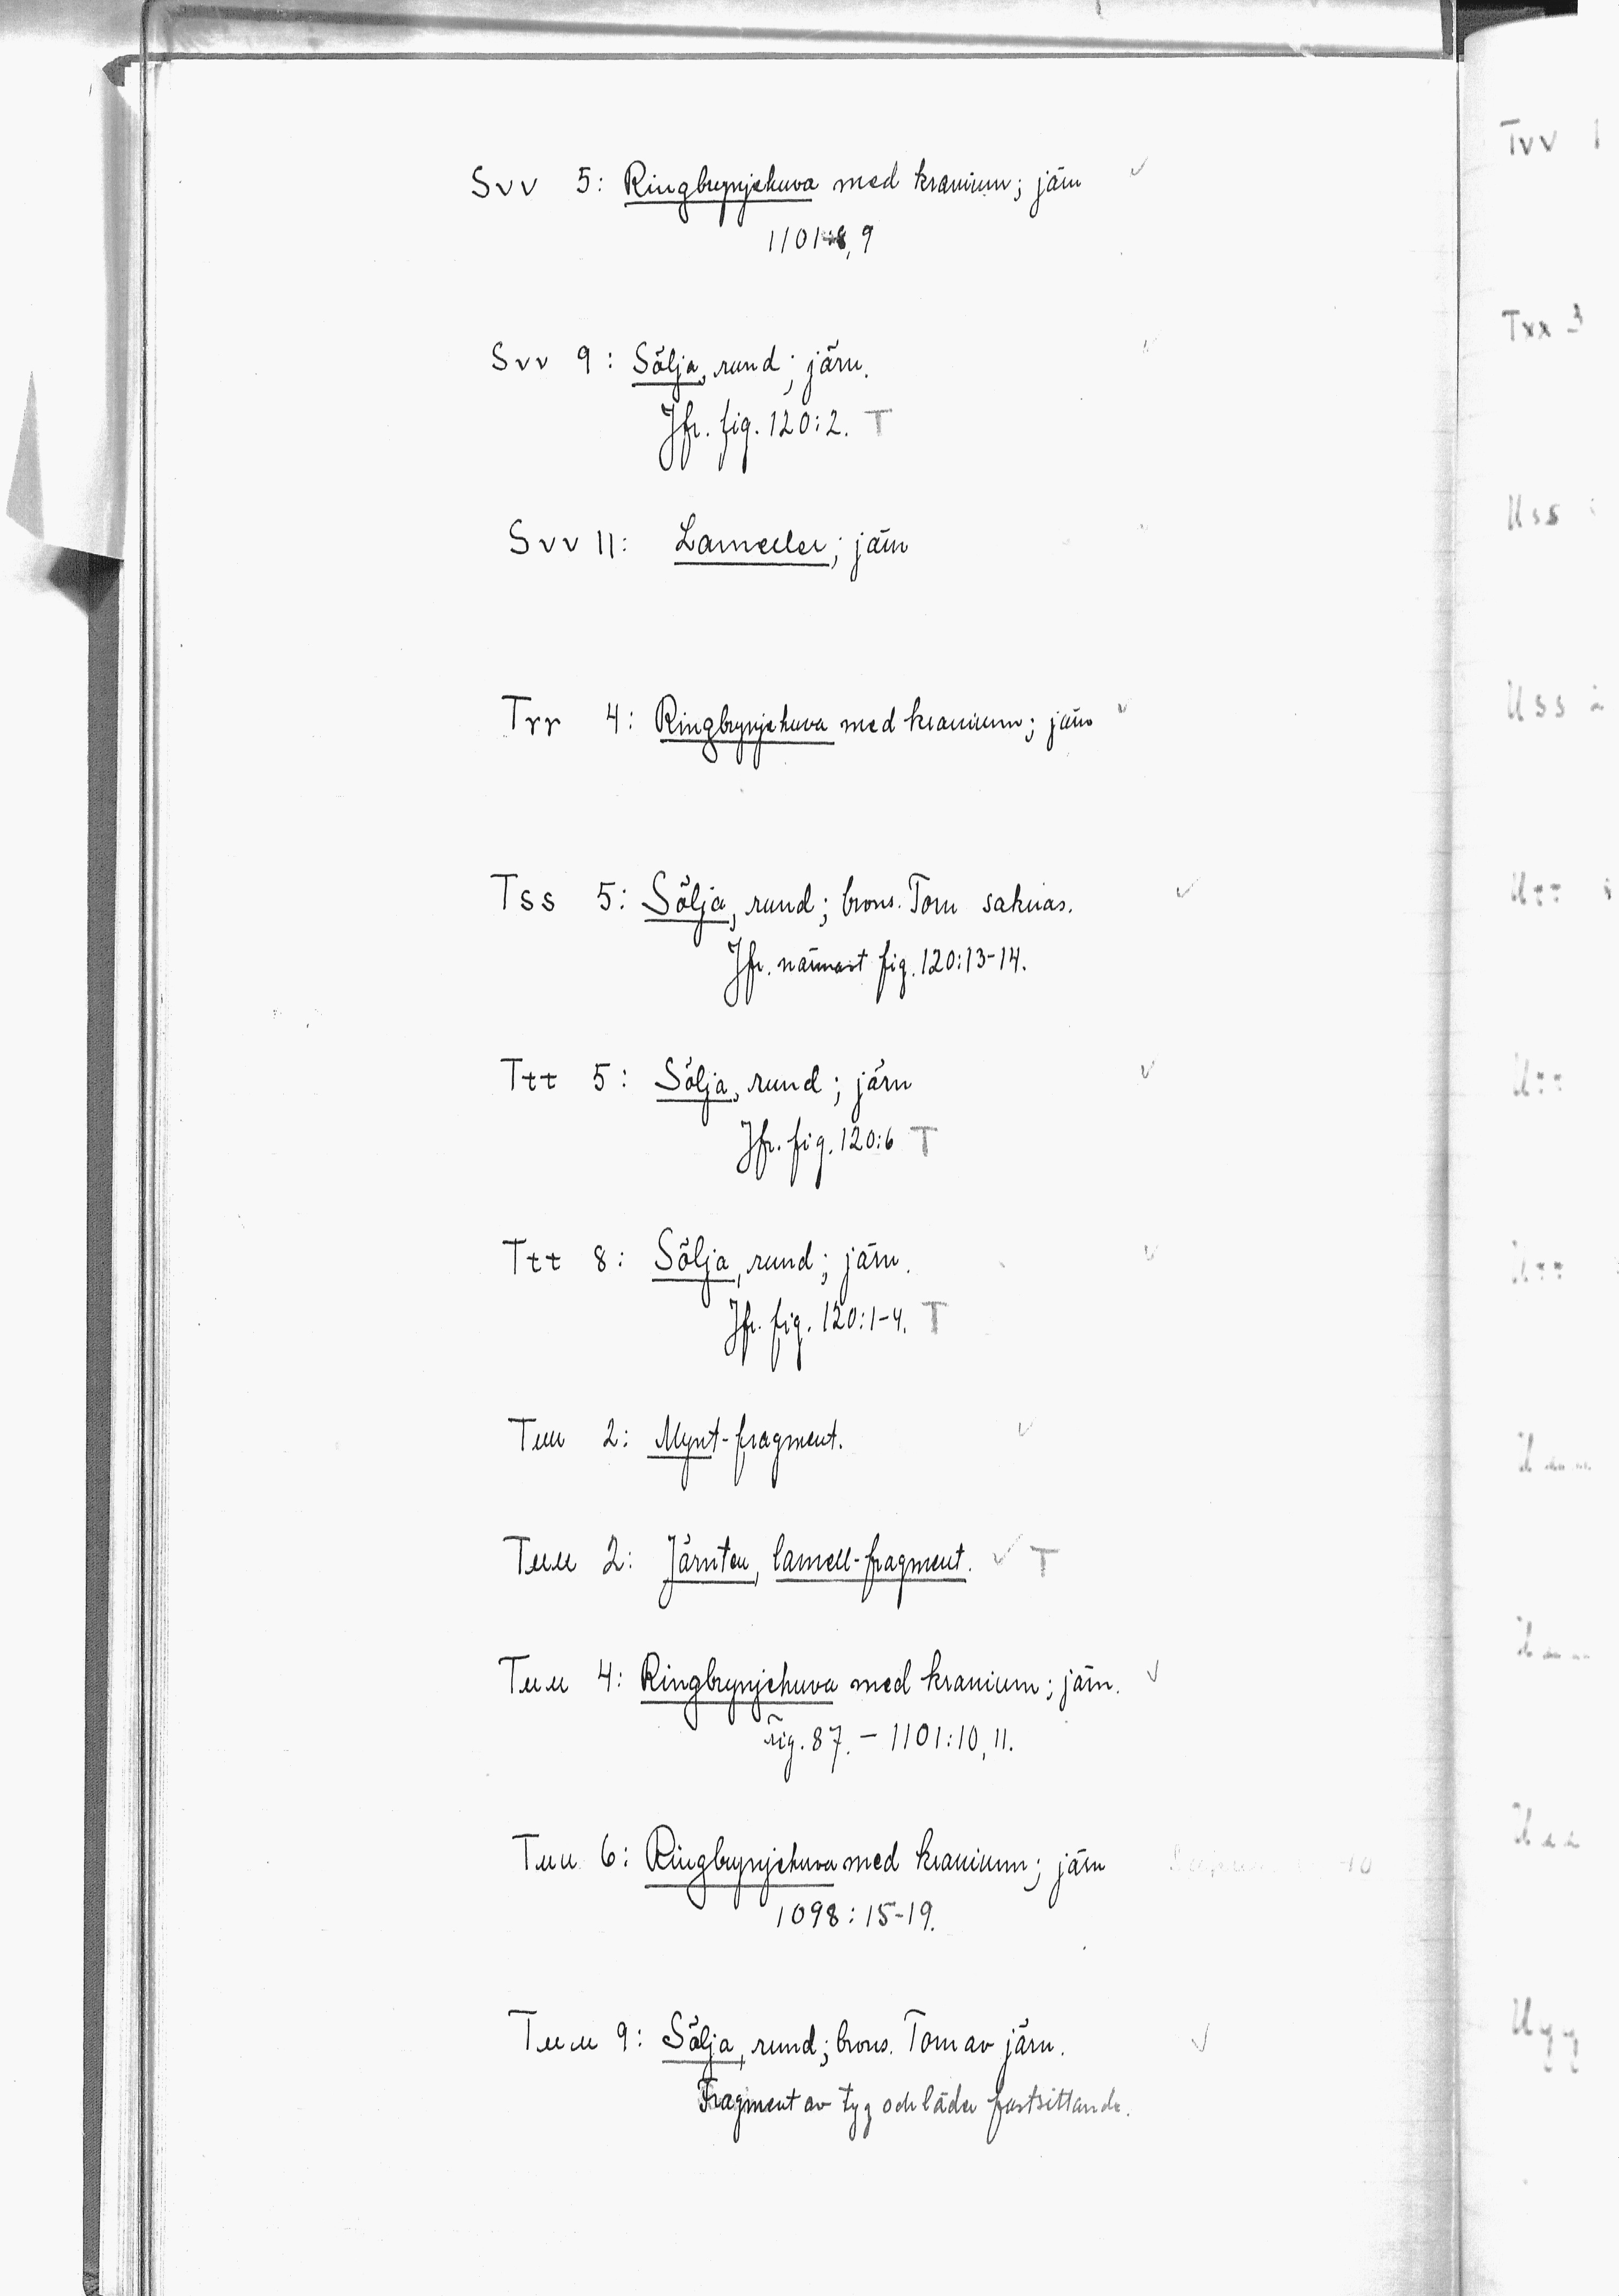 Svv 5: Ringbrynjehuva med kranium; järn ✓
1101:8, 9
Svv 9: Sölja, rund; järn.
Jfr. fig. 120:2. T
Svv 11: Lameller; järn
Trr 4: Ringbrynjehuva med kranium; järn ✓
Tss 5: Sölja, rund; brons. Torn saknas. ✓
Jfr. närmast fig. 120:13-14.
Ttt 5: Sölja, rund; järn ✓
Jfr. fig. 120:6 T
Ttt 8: Sölja, rund; järn. ✓
Jfr. fig. 120:1-4. T
Tuu 2: Mynt-fragment. ✓
Tuu 2: Järnten, lamell-fragment. ✓ T
Tuu 4: Ringbrynjehuva med kranium; järn. ✓
Fig. 87. – 1101:10, 11.
Tuu 6: Ringbrynjehuva med kranium; järn
1098: 15-19.
Tuu 9: Sölja, rund; brons. Torn av järn. ✓
Fragment av tyg och läder fastsittande.
Tvv 1
Txx 3
Uss
Uss 2
Utt
Utt
Utt
Uyy